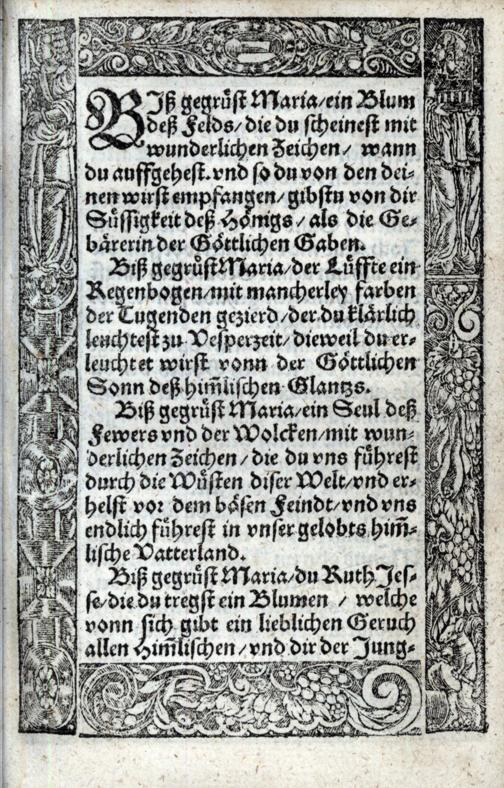 BIß gegrüst Maria/ein Blum
deß Felds/die du scheinest mit
wunderlichen Zeichen/ wann
du auffgehest. vnd so du von den dei-
nen wirst empfangen/gibstu von dir
Süssigkeit deß Hönigs/ als die Ge-
bärerin der Göttlichen Gaben.
Biß gegrüst Maria/der Lüffte ein
Regenbogen/mit mancherley farben
der Tugenden gezierd/der du klärlich
leuchtest zu Vesperzeit/dieweil du er-
leuchtet wirst vonn der Göttlichen
Sonn deß him̄lischen Glantzs.
Biß gegrüst Maria/ein Seul deß
Fewers vnd der Wolcken/mit wun-
derlichen Zeichen/die du vns führest
durch die Wüsten diser Welt/vnd er-
helst vor dem bösen Feindt/vnd vns
endlich führest in vnser gelobts him̄-
lische Vatterland.
Biß gegrüst Maria/du Ruth Jes-
se/die du tregst ein Blumen / welche
vonn sich gibt ein lieblichen Geruch
allen Him̄lischen/vnd dir der Jung-